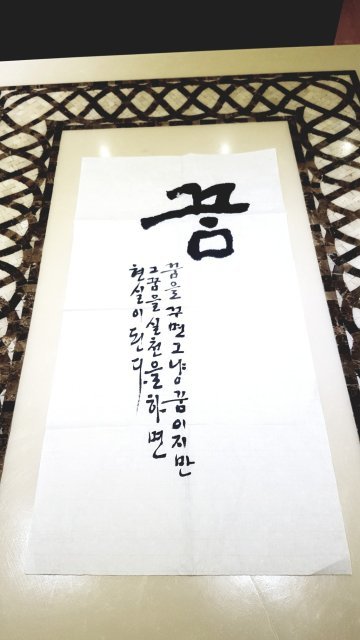 꿈
꿈을 꾸면 그냥 꿈이지만
그꿈을 실천을 하면
현실이 된다.